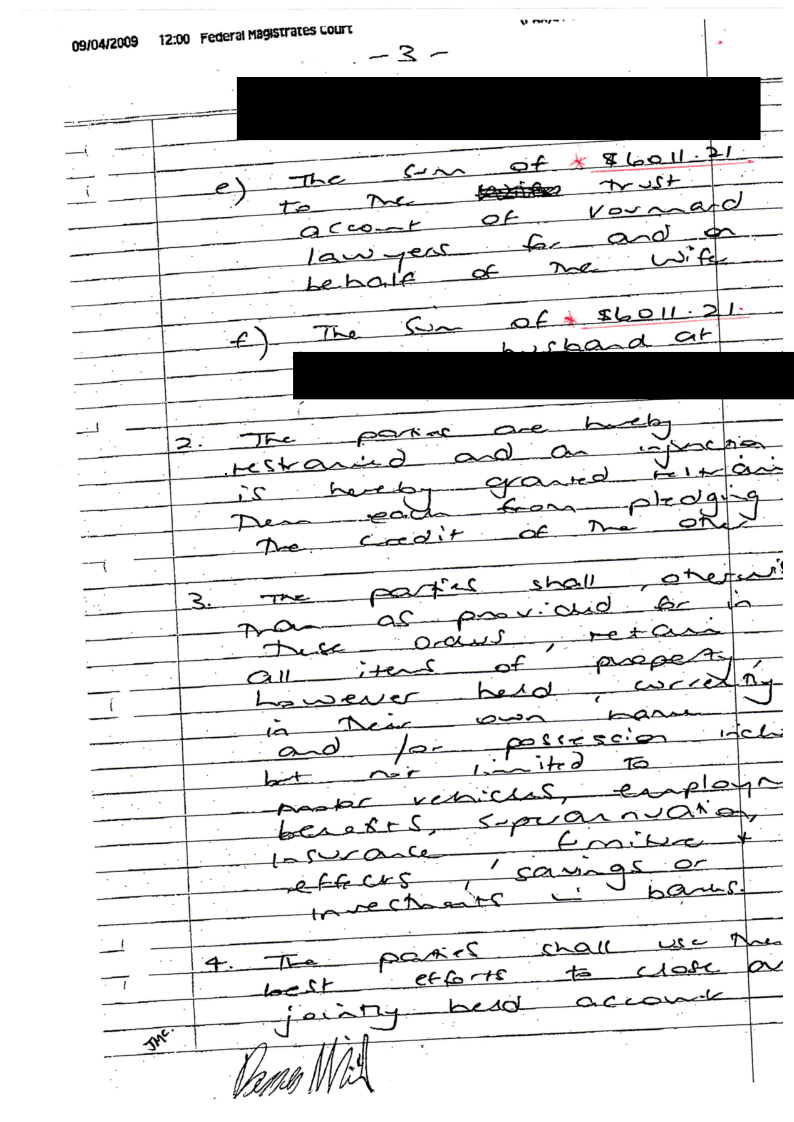 09/04/2009 12:00 Federal Magistrates Court
- 3 -
e) The sum of * $6011.21
to the trust
account of Vourmard
lawyers for and on
behalf of the wife
f) The sum of * $6011.21.
husband at
2. The parties are hereby
restrained and an injunction
is hereby granted restrain
them each from pledging
the credit of the other
3. The parties shall, otherwis
than as provided for in
these orders, retain
all items of property,
however held, currently
in their own name
and/or possession inclu
but not limited to
motor vehicles, employm
benefits, superannuation,
insurance, furniture +
effects, savings or
investments in banks.
4. The parties shall use their
best efforts to close
jointly held account
JMC.